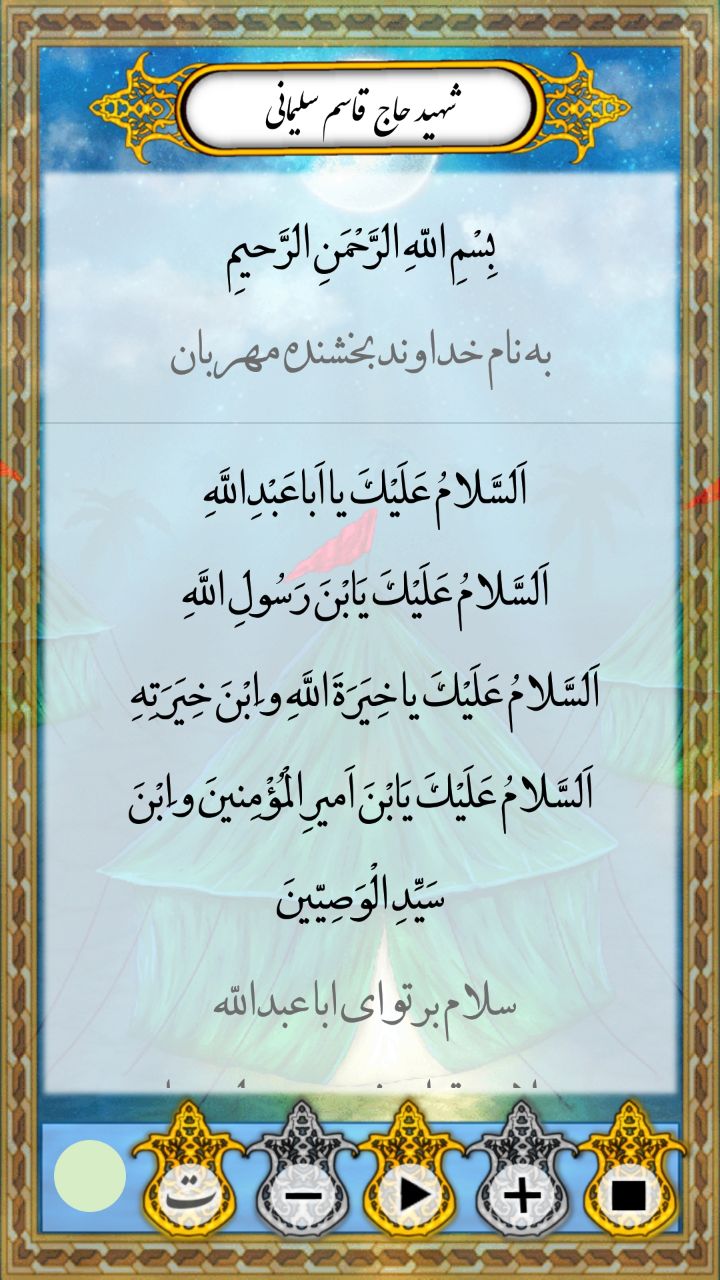 شهید حاج قاسم سلیمانی
بِسْمِ اللّهِ الرَّحْمَنِ الرَّحیمِ
به نام خداوند بخشنده مهربان
اَلسَّلامُ عَلَیْكَ یا اَبا عَبْدِ اللَّهِ
اَلسَّلامُ عَلَیْكَ یَابْنَ رَسُولِ اللَّهِ
اَلسَّلامُ عَلَیْكَ یا خِیَرَةَ اللَّهِ واِبْنَ خِیَرَتِهِ
اَلسَّلامُ عَلَیْكَ یَابْنَ اَمیرِ الْمُؤْمِنینَ واِبْنَ
سَیِّدِ الْوَصِیّینَ
سلام بر تو ای ابا عبدالله
ت